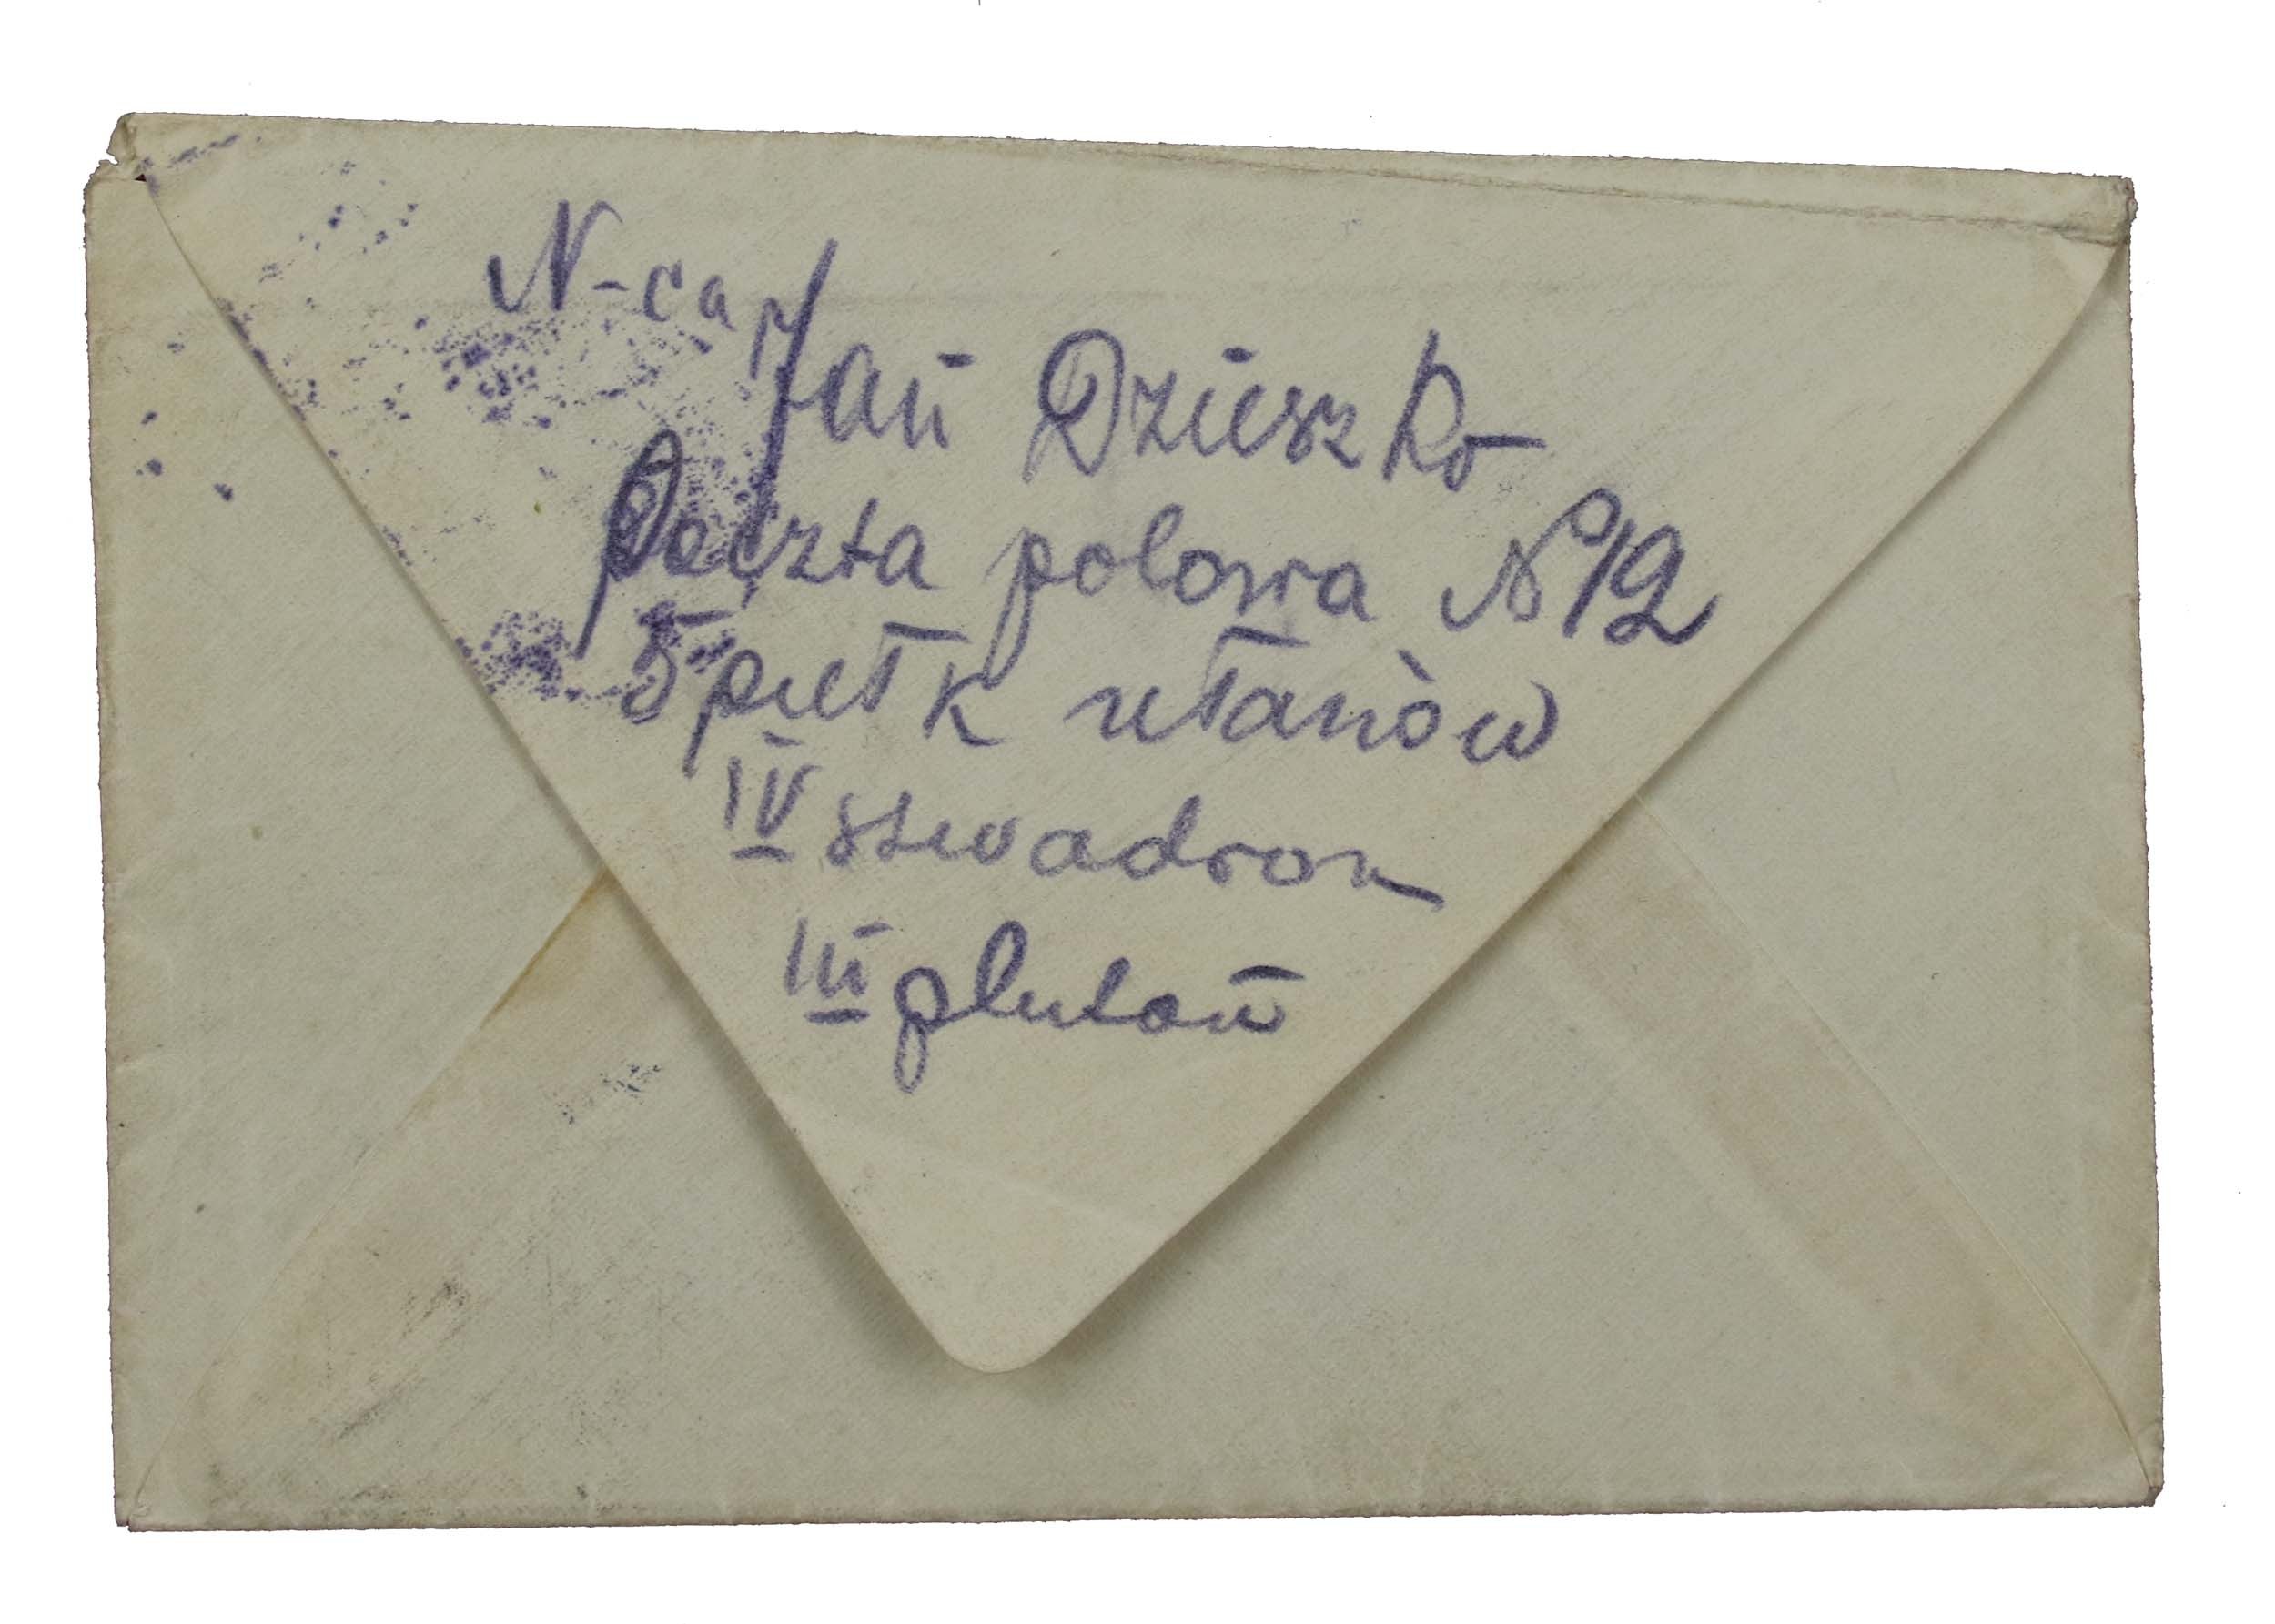 N-ca
Jan Dzieszko
Poczta polowa No 12
5 pułk ułanów
IV szwadron
III pluton